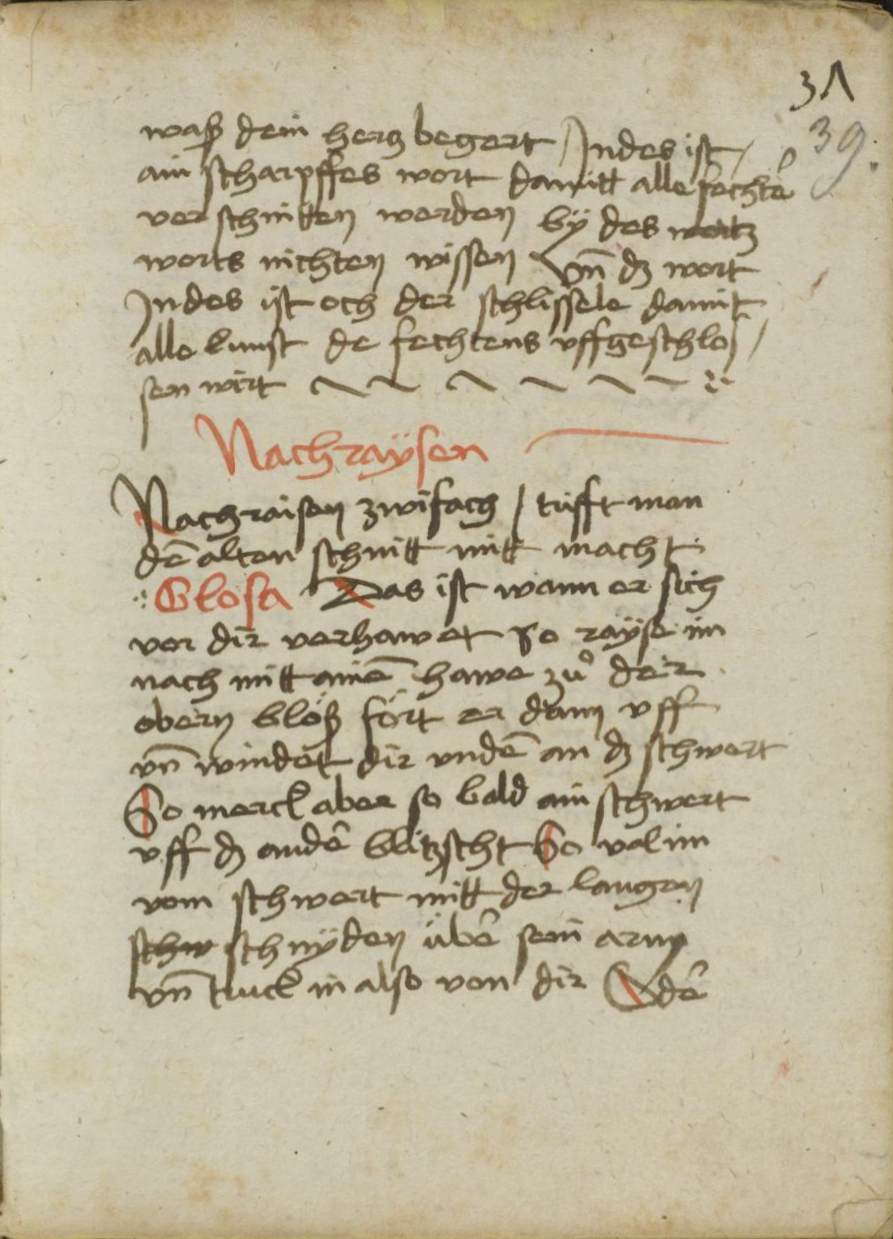 31
39.
waß dein herz begert Jndes ist
ain scharpffes wort damitt alle fechtē
verschnitten werden bÿ des wortz
worts nichten wissen Vñ dz wort
Jndes ist och der schlissele damit
alle kunst de fechtens vffgeschlos/
sen wirt
Nachraÿsen
Nachraisen zwifach / trifft man
dē alten schnitt mitt macht
Glosa Das ist wann er sich
vor dir verhawet So raÿse im
nach mitt ainē hawe zů der
obern blöß fört er dann vff
vñ windet dir vndē an dz schwert
So merck aber so bald ain schwert
vff dz andē blitzscht So val im
vom schwert mitt der langen
schw schnÿden übē sein arm
vñ truck in also von dir Odē